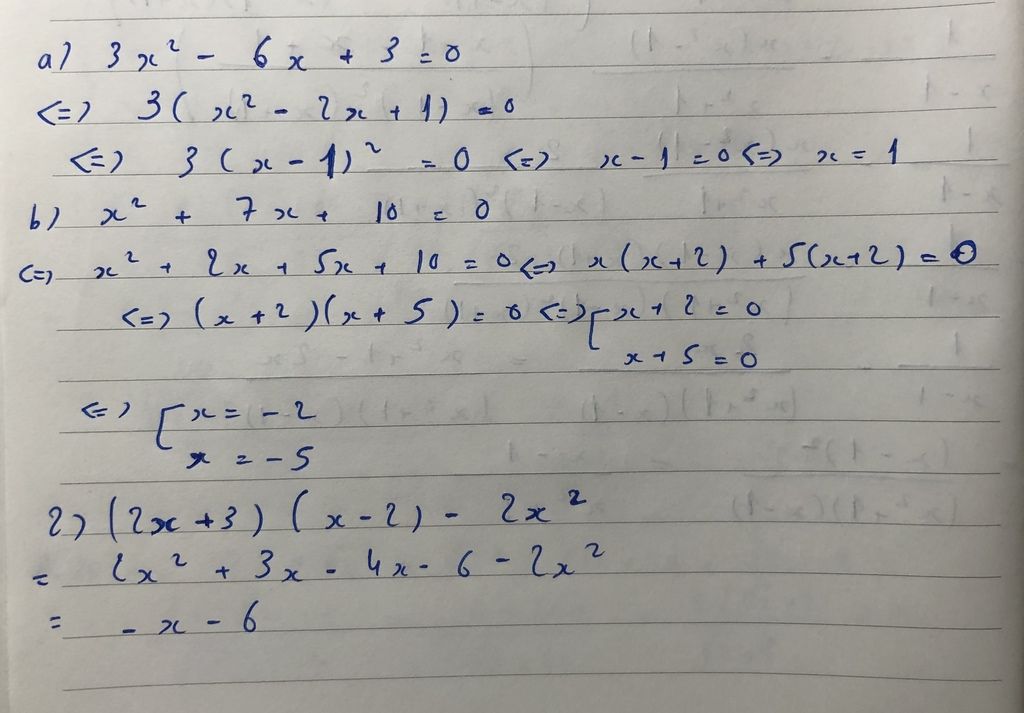 a) 3x² - 6x + 3 = 0
<=> 3(x² - 2x + 1) = 0
<=> 3(x - 1)² = 0 <=> x - 1 = 0 <=> x = 1
b) x² + 7x + 10 = 0
<=> x² + 2x + 5x + 10 = 0 <=> x(x+2) + 5(x+2) = 0
<=> (x+2)(x+5) = 0 <=> [ x + 2 = 0
x + 5 = 0
<=> [ x = -2
x = -5
2) (2x+3)(x-2) - 2x²
= 2x² + 3x - 4x - 6 - 2x²
= - x - 6